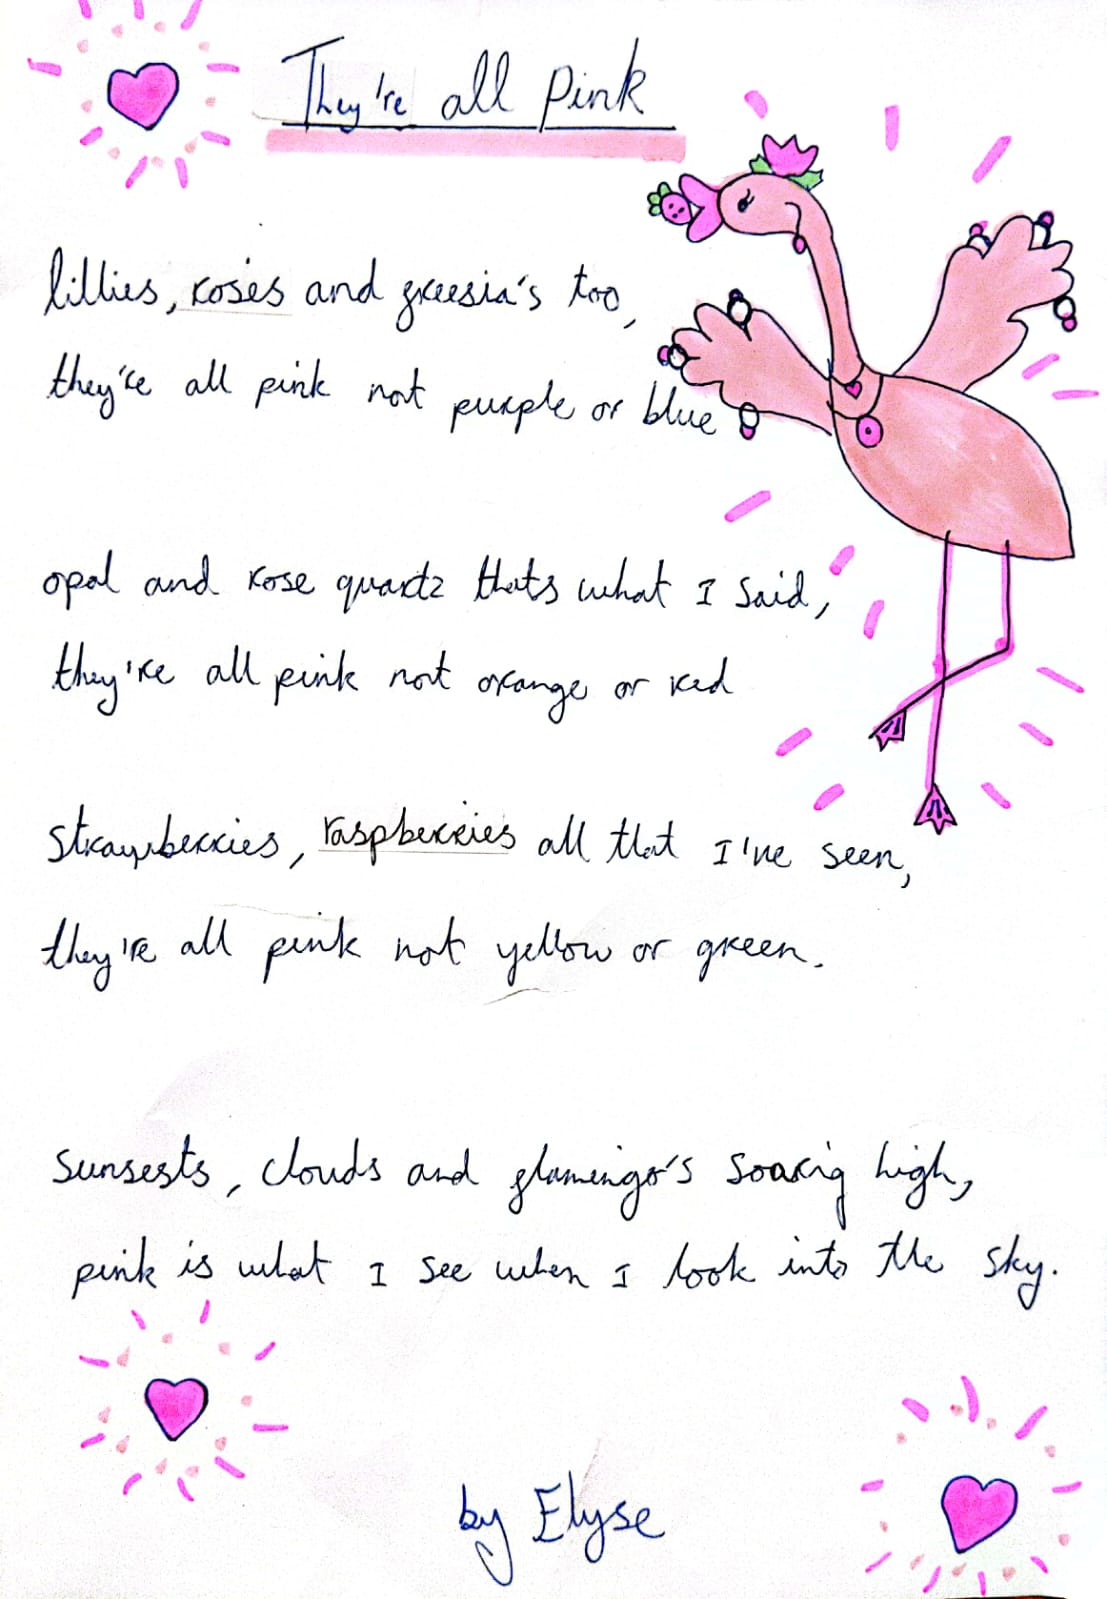 They're all Pink
lillies, roses and freesia's too,
they're all pink not purple or blue
opal and rose quartz thats what I said,
they're all pink not orange or red
strawberries, raspberries all that I've seen,
they're all pink not yellow or green.
sunsests, clouds and flamingo's soarig high,
pink is what I see when I look into the sky.
by Elyse